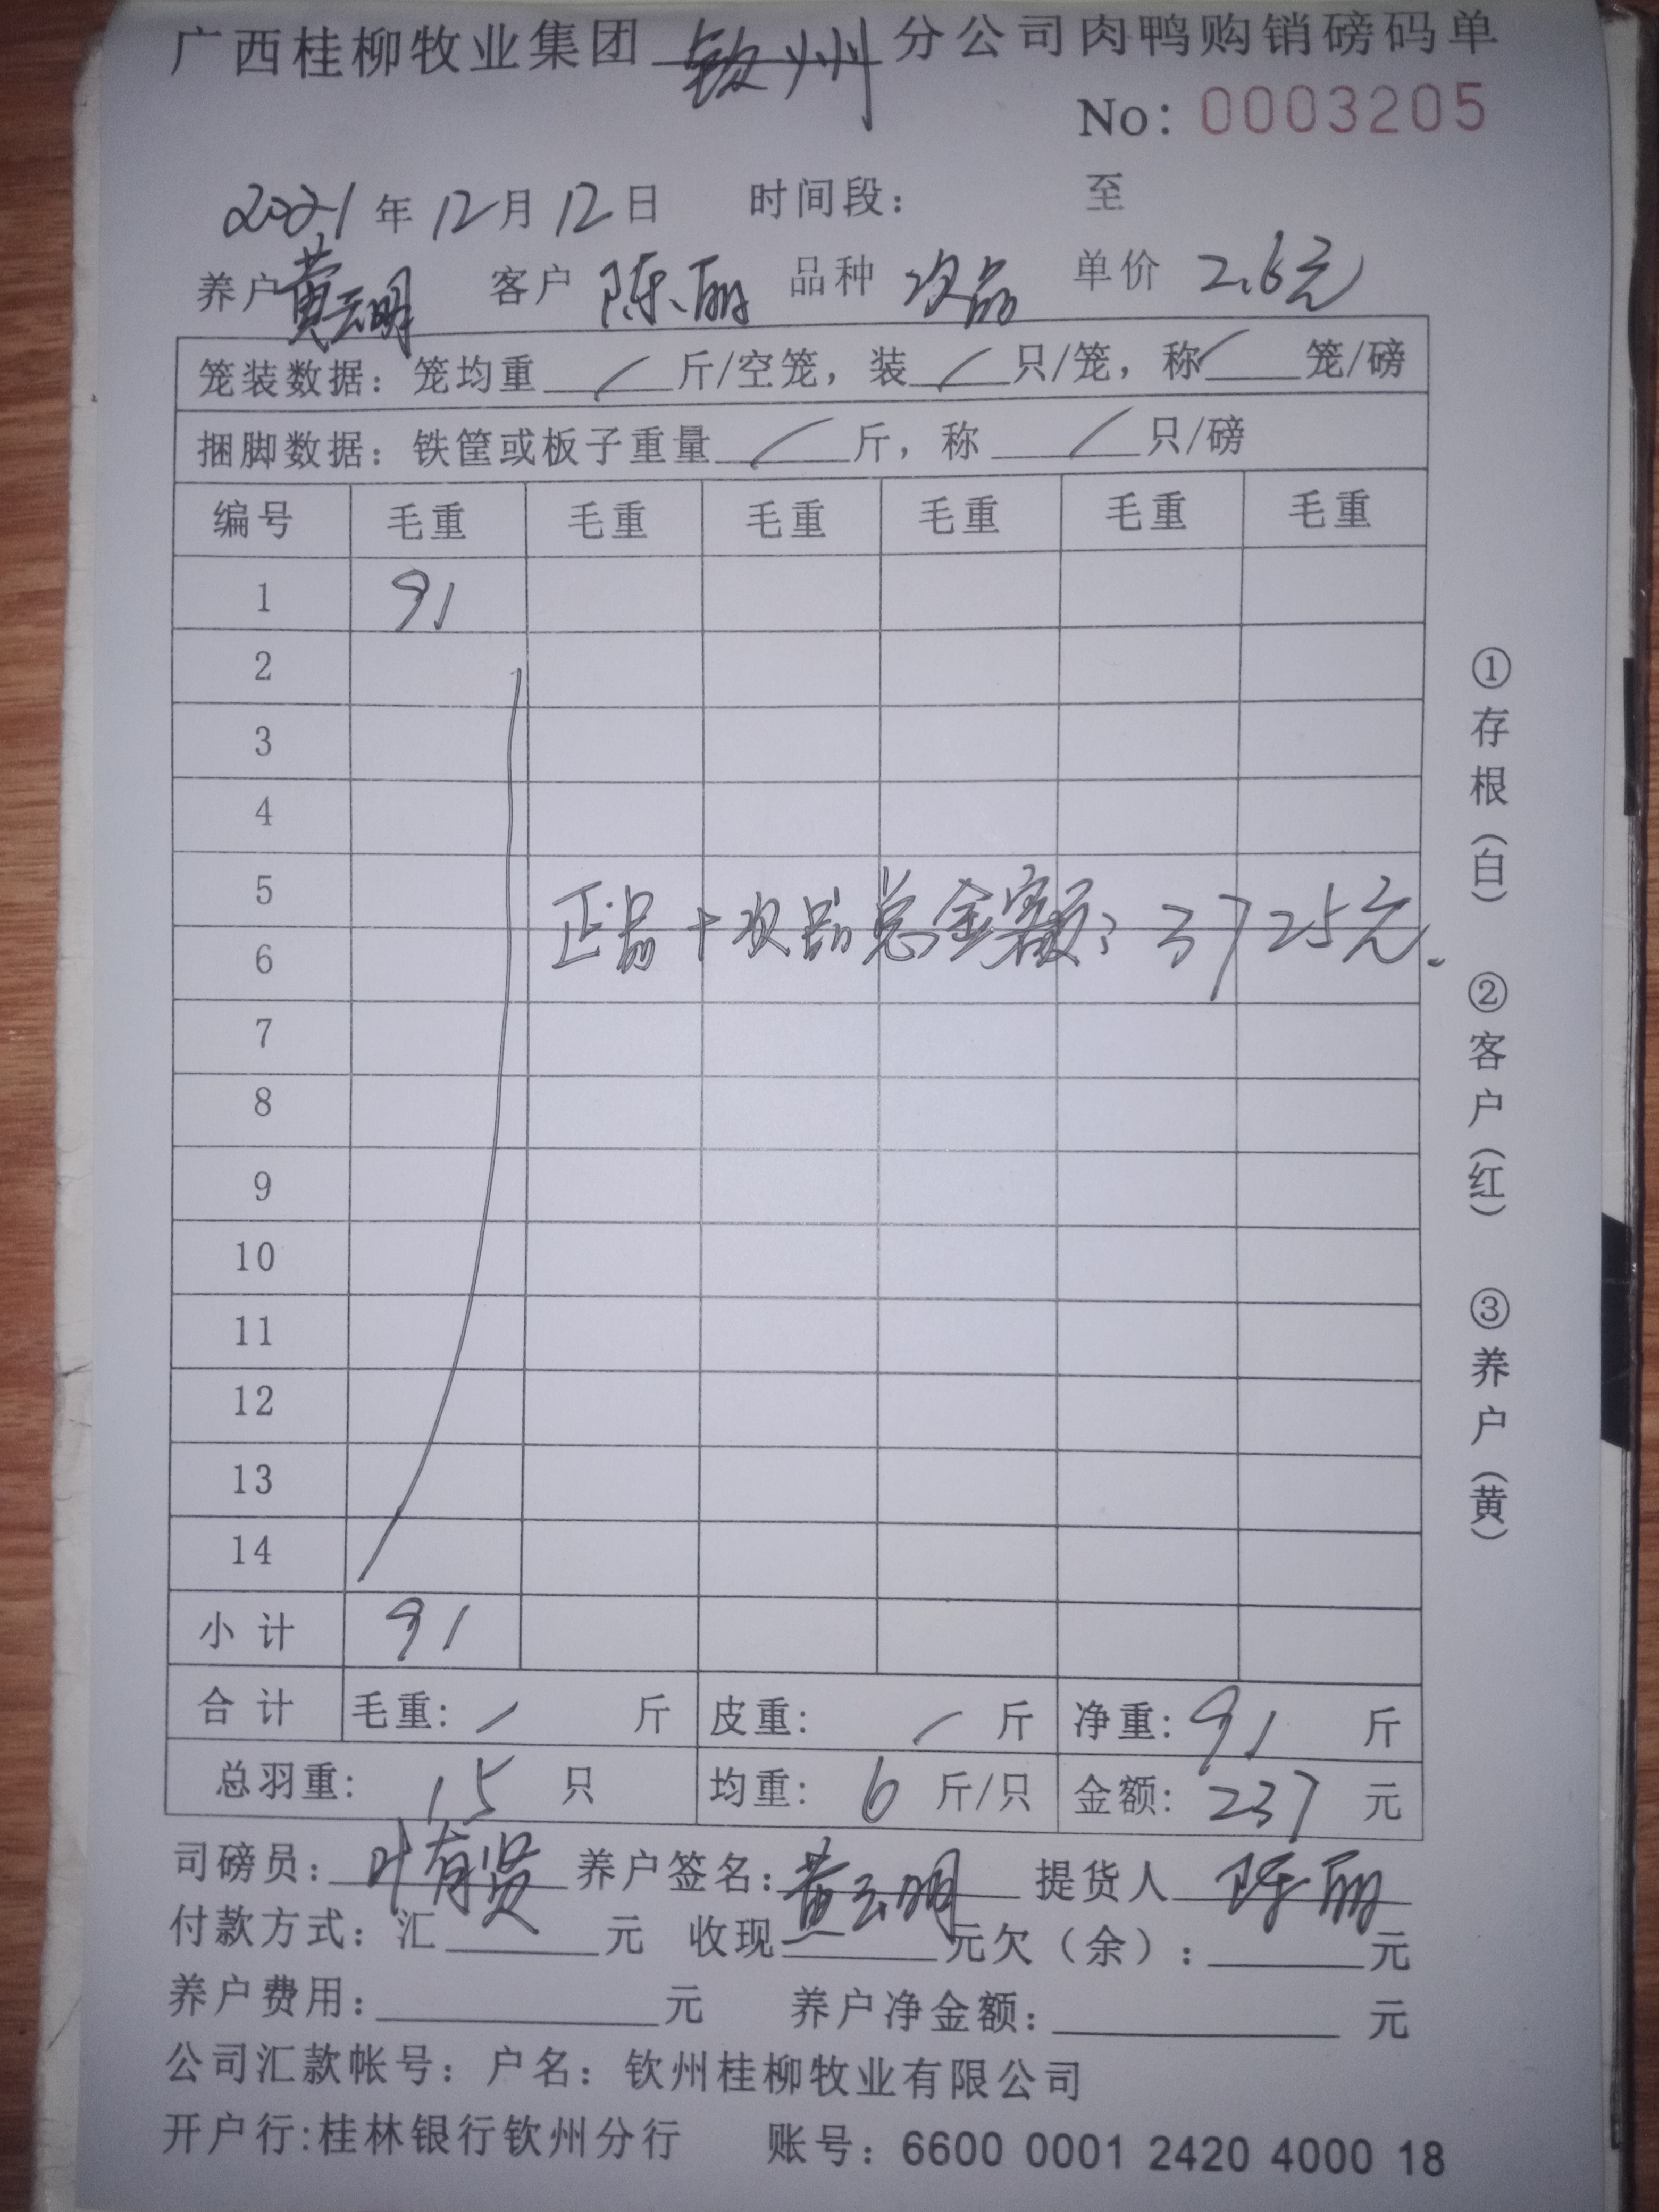 广西桂柳牧业集团 钦州 分公司肉鸭购销磅码单
No: 0003205
2021 年 12 月 12 日 时间段: 至
养户 黄云明 客户 陈丽 品种 次品 单价 2.6元
笼装数据: 笼均重 / 斤/空笼, 装 / 只/笼, 称 / 笼/磅
捆脚数据: 铁筐或板子重量 / 斤, 称 / 只/磅
编号 毛重 毛重 毛重 毛重 毛重 毛重
1 91
2
3
4
5
正品+次品总金额: 3725元.
6
7
8
9
10
11
12
13
14
小计 91
合计 毛重: / 斤 皮重: / 斤 净重: 91 斤
总羽重: 15 只 均重: 6 斤/只 金额: 237 元
司磅员: 叶有贤 养户签名: 黄云明 提货人 陈丽
付款方式: 汇 元 收现 元欠(余): 元
养户费用: 元 养户净金额: 元
公司汇款帐号: 户名: 钦州桂柳牧业有限公司
开户行:桂林银行钦州分行 账号: 6600 0001 2420 4000 18
①存根(白) ②客户(红) ③养户(黄)